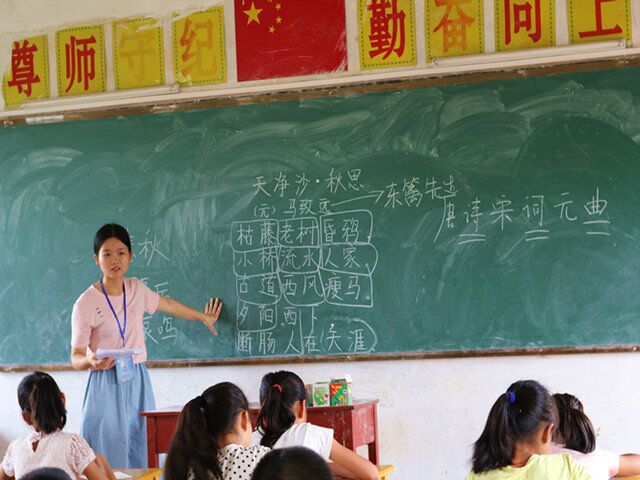 尊师守纪
勤奋向上
天净沙·秋思
(元)马致远
东篱先生
唐诗宋词元曲
枯藤老树昏鸦
小桥流水人家
古道西风瘦马
夕阳西下
断肠人在天涯
秋
鸣